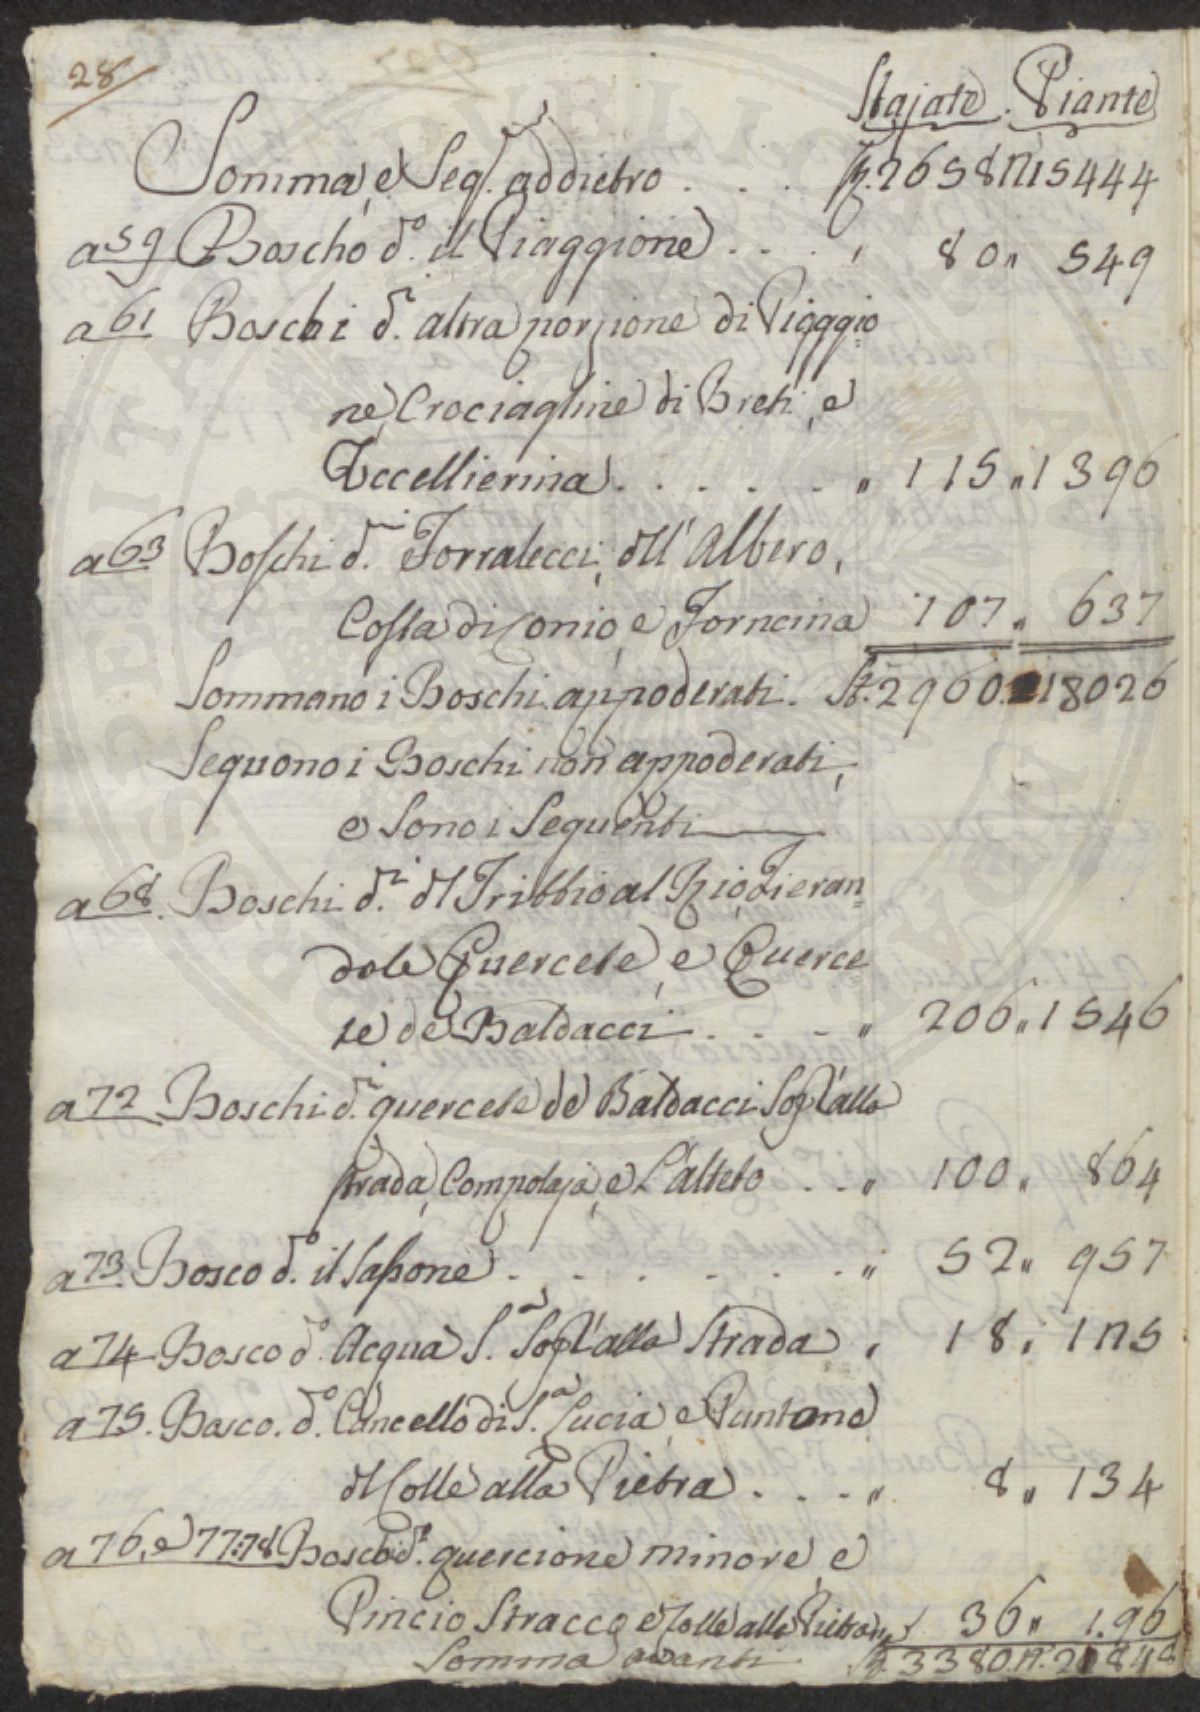 28
Stajate. Piante
Somma, e Seg.e addietro . . . St. 2658 n 15444
a 59 Boscho d.o il Piaggione . . . , 80 " 549
a 61 Boschi d.i altra porzione di Piaggio=
ne, Crociagline di Breti, e
Uccellierina . . . . . " 115 " 1396
a 63 Boschi d.i Torralecci, dll' Albero,
Costa di Conio, e Forncina 107 " 637
Sommano i Boschi appoderati. St. 2960. 18026
Seguono i Boschi non appoderati,
e Sono i Seguenti
a 68. Boschi d.i dl Tribbio al Rio, Fieran=
dole Quercete, e Querce
te de Baldacci . . . " 206 " 1546
a 72 Boschi d.i quercete de Baldacci Sop.a alla
strada, Compolaja, e L'alteto . . . " 100 " 864
a 73. Bosco d.o il Sassone . . . . . . . " 52 " 957
a 74 Bosco d.o Acqua S.a Sop.a alla Strada , 18 , 125
a 75. Bosco. d.o Cancello di S.a Lucia, e Pantano
dl Colle alla Pietra . . . " 8 " 134
a 76, e 77:78 Boschi d.i quercione minore, e
Pincio Stracco e Colle alla Pietra " 36 " 196
Somma avanti St. 3380. n. 21848
SSPERITAS PUBLICA AUGUSTA